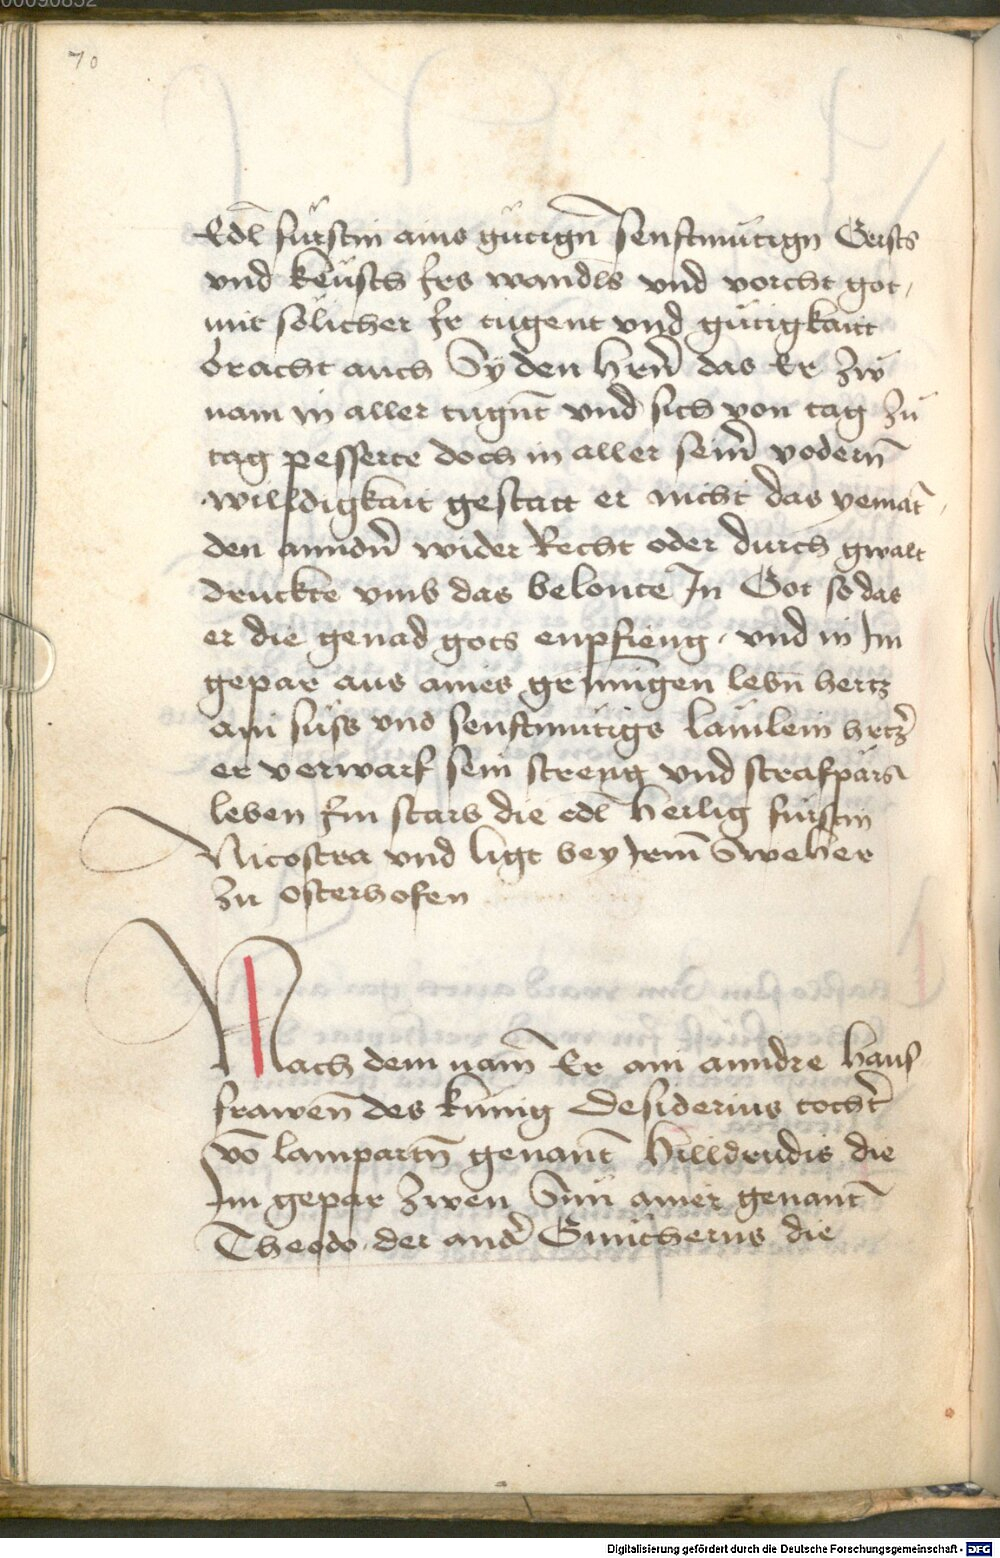 70
Edl fürstin ains gütign̄ senftmütign Geists
vnd keüsch Irs wandls vnd vorcht got,
mit sölicher Ir tugent vnd gütigkait
bracht auch Sy den hern̄ das Er zw
nam in aller tugn̄t vnd sich von tag zü
tag pesserte doch in aller seinr̄ vodern̄
willdigkait gestatt er nicht das yemat̄
den anndn̄ wider Recht oder durch gwalt
druckte vmb das belonte In Got so das
er die genad gots enpfieng, vnd in Im
gepar aus aines grimigen lebn̄ hertz
ain süss vnd senftmütigs lämlein hrtz
er verwarf sein streng vnd strafpärs
leben Im starb die edl heilig fürstin
Nicostra vnd ligt bey Irem̄ Sweher
zu osterhofen
Nach dem nam̄ Er ain anndre hauß
frawen̄ des künig Desiderius tocht̄
vō lampartn̄ genant̄ hilldrudis die
Im gepar zwen Sün ainer genant̄
Theodo der and̄ Güntherus die
Digitalisierung gefördert durch die Deutsche Forschungsgemeinschaft - DFG